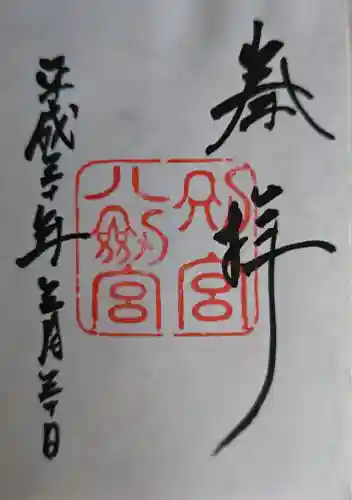 奉拝
別宮
八剣宮
平成三十年三月三十日